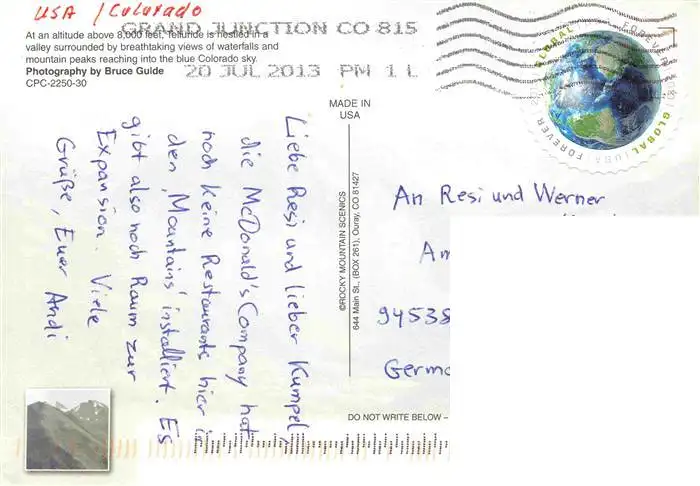 USA / Colorado
At an altitude above 8,000 feet, Telluride is nestled in a
valley surrounded by breathtaking views of waterfalls and
mountain peaks reaching into the blue Colorado sky.
Photography by Bruce Gulde
CPC-2250-30
GRAND JUNCTION CO 815
20 JUL 2013 PM 1 L
GLOBAL FOREVER
GLOBAL USA FOREVER
MADE IN
USA
©ROCKY MOUNTAIN SCENICS
644 Main St., (BOX 261), Ouray, CO 81427
Liebe Resi und lieber Kumpel,
die McDonald's Company hat
noch keine Restaurants hier in
den 'Mountains' installiert. Es
gibt also noch Raum zur
Expansion. Viele
Grüße, Euer Andi
An Resi und Werner
Am
94535
Germa
DO NOT WRITE BELOW –